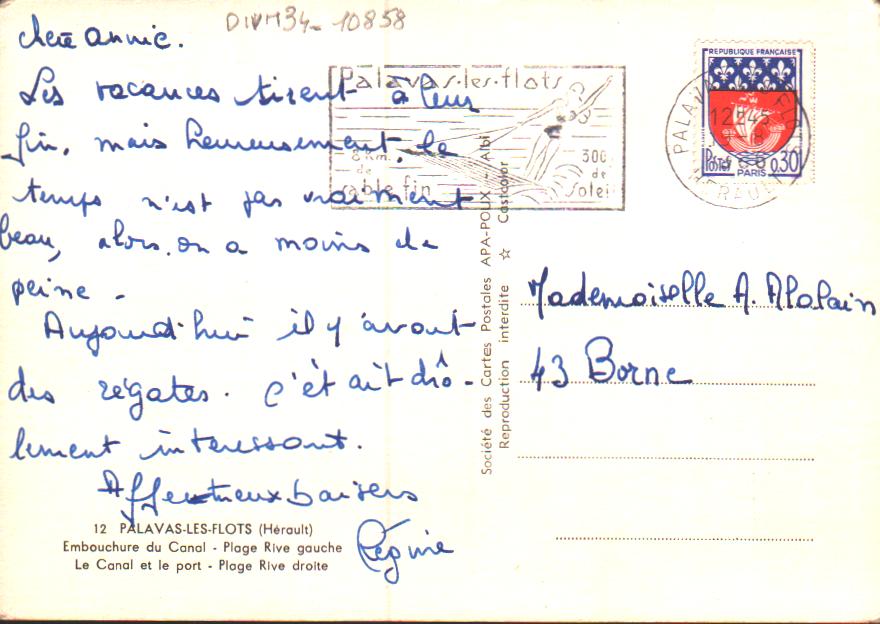 DIVM34-10858
chère annie.
Les vacances tirent à leur
fin, mais heureusement, le
temps n'est pas vraiment
beau, alors on a moins de
peine.
Aujourd'hui il y avait
des régates. C'était drô-
lement intéressant.
Affectueux baisers
Régine
12 PALAVAS-LES-FLOTS (Hérault)
Embouchure du Canal - Plage Rive gauche
Le Canal et le port - Plage Rive droite
Palavas-les-flots
8 Km.
de
sable fin
300
de
soleil
Société des Cartes Postales APA-POUX - Albi
Reproduction interdite ☆ Castcolor
REPUBLIQUE FRANÇAISE
POSTES 0,30
PARIS
PALAVAS
12H45
HERAULT
Mademoiselle A. Alalain
43 Borne